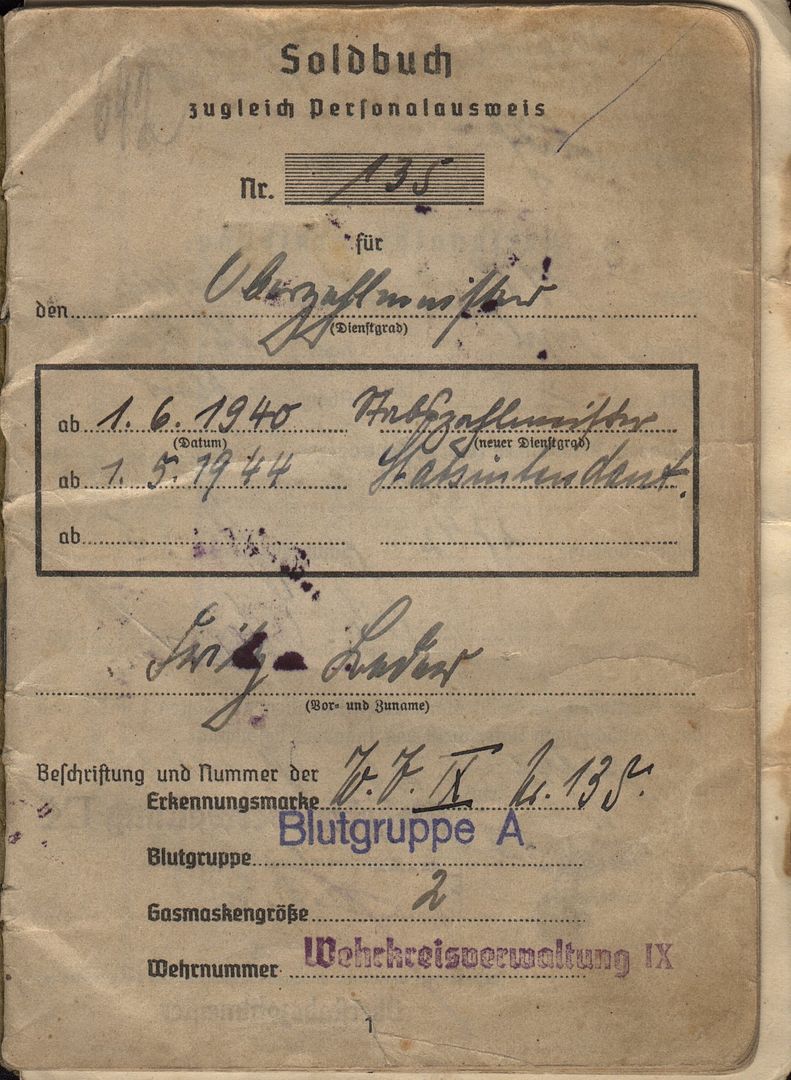 Soldbuch
zugleich Personalausweis
Nr. 135
für
den Oberzahlmeister
(Dienstgrad)
ab 1. 6. 1940 Stabszahlmeister
(Datum) (neuer Dienstgrad)
ab 1. 5. 1944 Stabsintendant.
ab
Fritz
(Vor- und Zuname)
Beschriftung und Nummer der
Erkennungsmarke IX Nr. 135.
Blutgruppe A
Blutgruppe
Gasmaskengröße 2
Wehrnummer Wehrkreisverwaltung IX
1